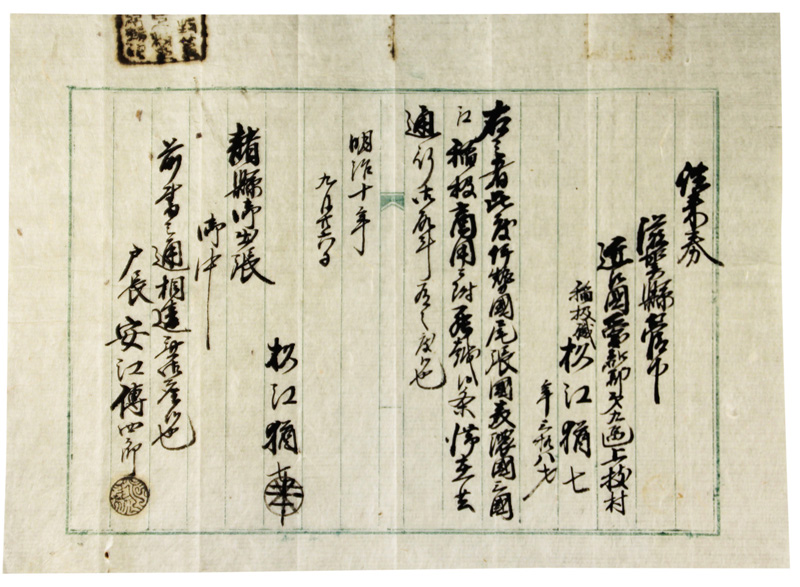 往来券
滋賀縣管下
近江國愛知郡第九區上枝村
稲扱職 松江猶七
年三拾八才
右之者此度伊勢國尾張國美濃國三國
江稲扱商用ニ付罷越候条
通行
明治十年
九月廿六日
松江猶七
諸縣御出張
御中
前書之通相違無御座候也
戸長 安江傳四郎